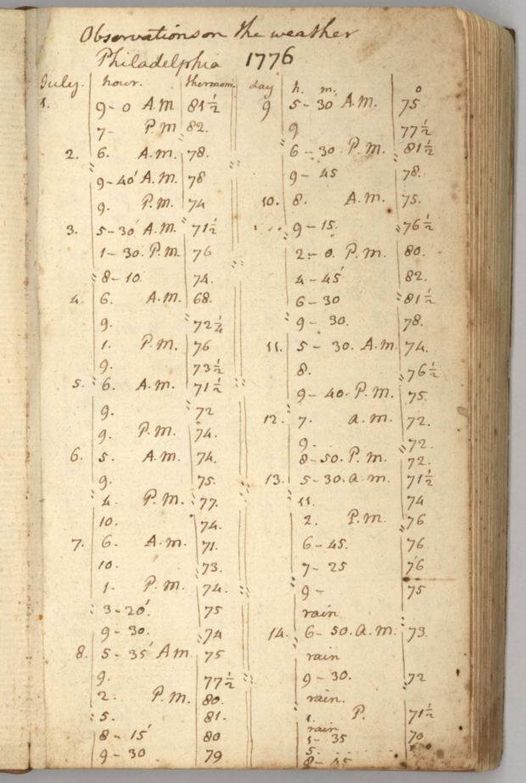 Observations on the weather
Philadelphia 1776
July. hour. thermom.
1. 9-0 A.M. 81½
7- P.M. 82.
2. 6. A.M. 78.
9-40' A.M. 78
9. P.M. 74
3. 5-30' A.M. 71½
1-30. P.M. 76
8-10. 74.
4. 6. A.M. 68.
9. 72¼
1. P.M. 76
9. 73½
5. 6. A.M. 71½
9. 72
9. P.M. 74.
6. 5. A.M. 74.
9. 75.
4. P.M. 77.
10. 74.
7. 6- A.M. 71.
10. 73.
1- P.M. 74.
3-20' 75
9-30. 74
8. 5-35' A.M. 75
9. 77½
2. P.M. 80.
5. 81.
8-15' 80
9-30 79
day h. m. o
9 5-30 A.M. 75
9 77½
6-30. P.M. 81½
9-45 78.
10. 8. A.M. 75.
9-15. 76½
2-0. P.M. 80.
4-45' 82.
6-30 81½
9-30. 78.
11. 5-30. A.M. 74.
8. 76½
9-40. P.M. 75.
12. 7. a.m. 72.
9. 72.
8-50. P.M. 72.
13. 5-30. a.m. 71½
11. 74
2. P.M. 76
6-45. 76
7-25 76
9- 75
rain
14. 6-50. a.m. 73.
rain
9-30. 72
rain.
1. P. 71½
rain
1-35 70
5.
8-45